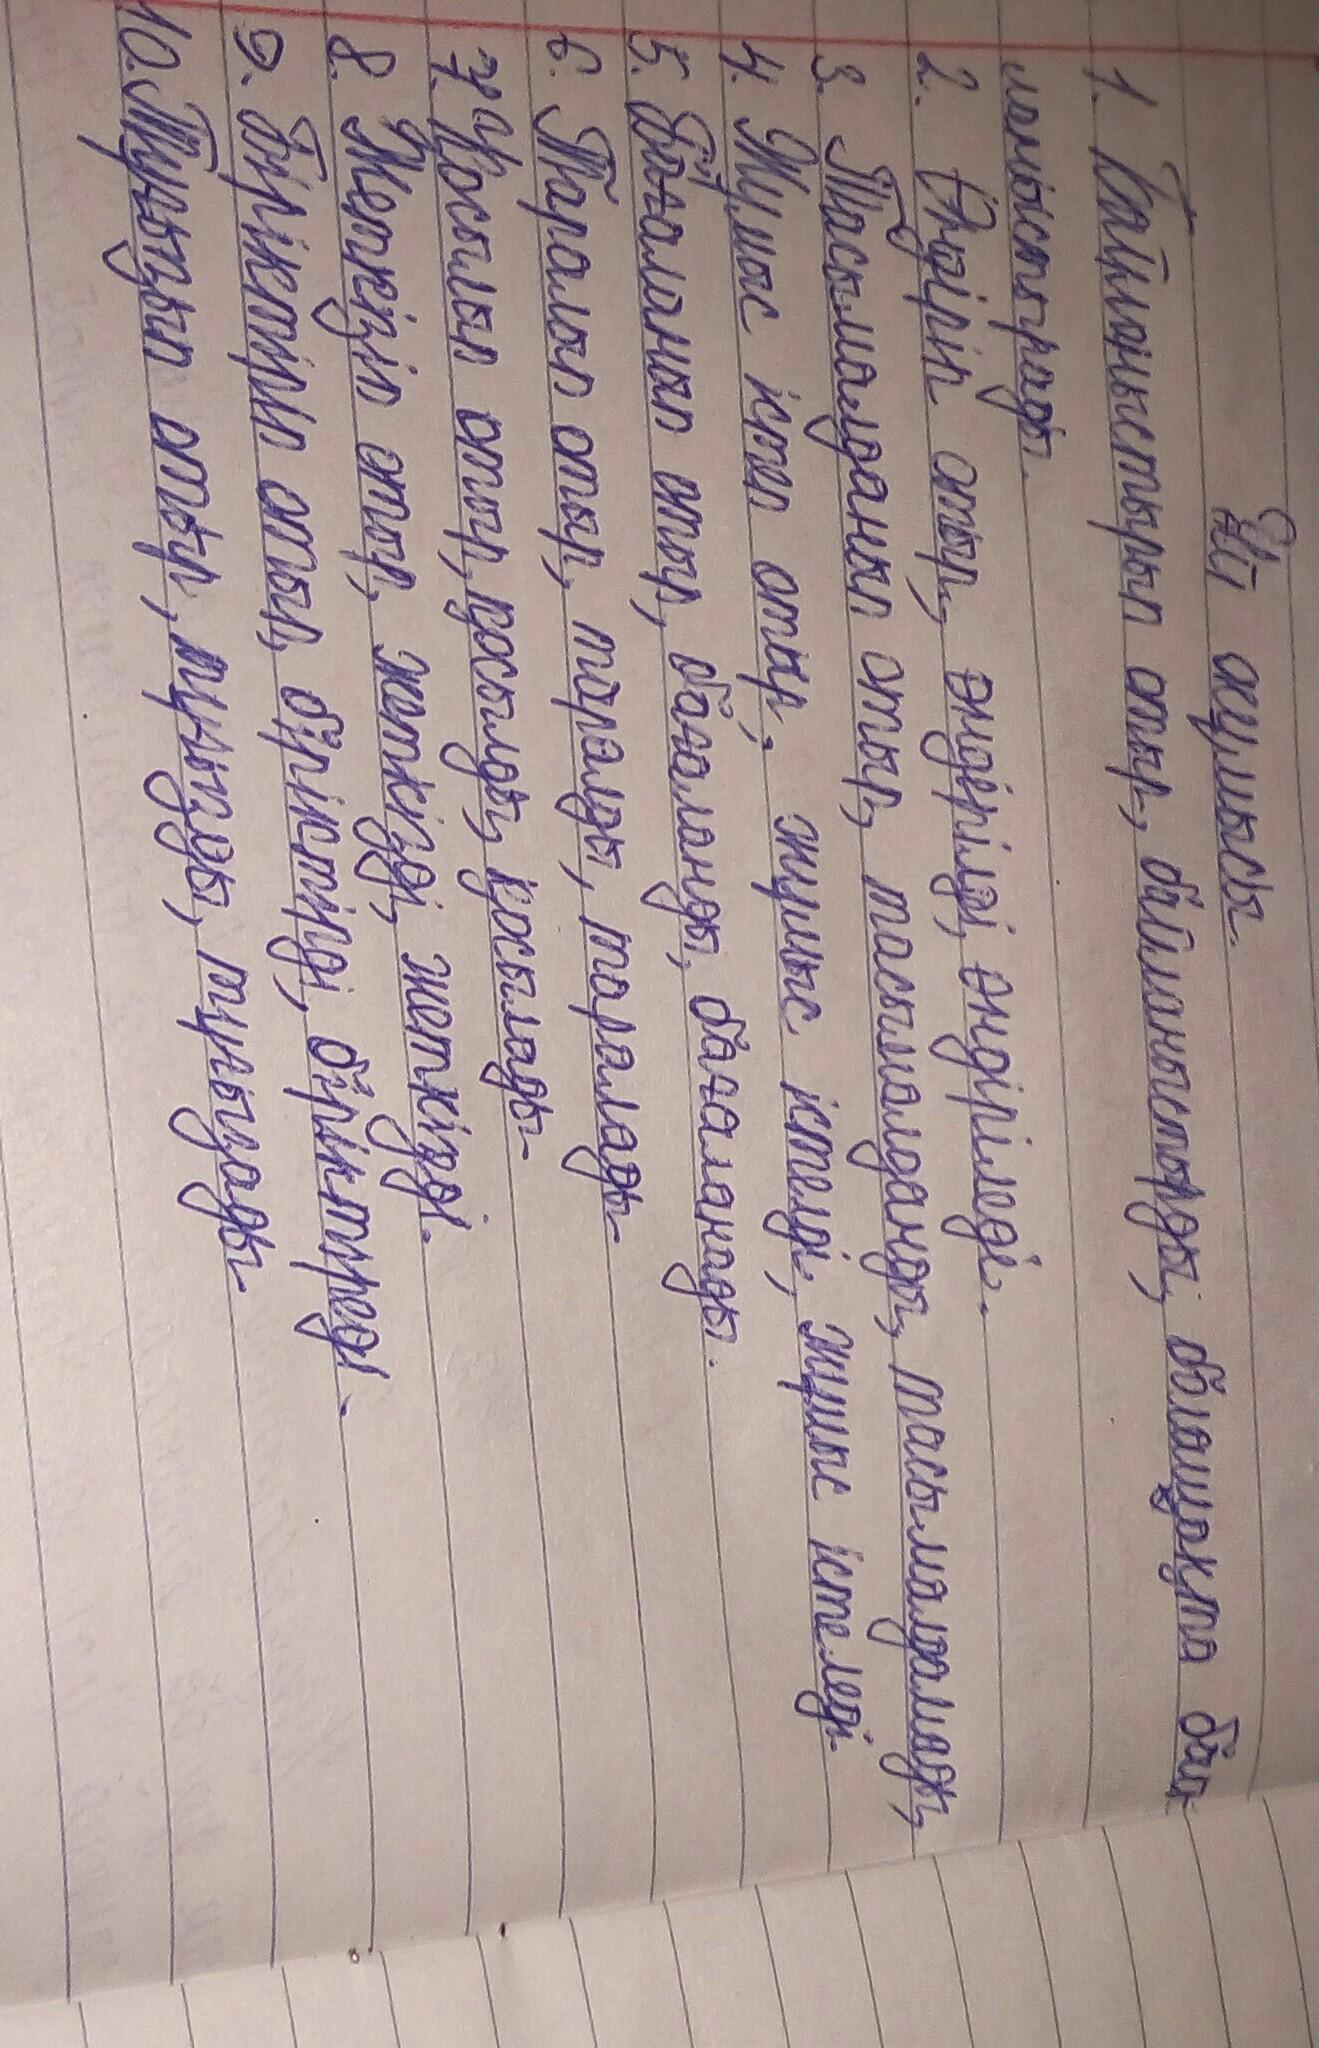 Үй жұмысы.
1. Байланыстырып отыр, байланыстырды, болашақта бай-
ланыстырады.
2. Өндіріп отыр, өндірілді, өндіріледі.
3. Тасымалданып отыр, тасымалданды, тасымалдамады,
4. Жұмыс істеп отыр, жұмыс істелді, жұмыс істеледі.
5. Бағаланып отыр, бағаланды, бағаланады.
6. Таралып отыр, таралды, таралады.
7. Қосылып отыр, қосылды, қосылады.
8. Жеткізіп отыр, жеткізді, жеткізді.
9. Біріктіріп отыр, біріктірді, біріктіреді.
10. Туындап отыр, туынды, туындады.